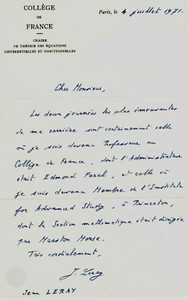 COLLÈGE
DE
FRANCE
CHAIRE
DE THÉORIE DES ÉQUATIONS
DIFFÉRENTIELLES ET FONCTIONNELLES
Paris, le 4 juillet 1971.
Cher Monsieur,
Les deux journées les plus émouvantes
de ma carrière sont certainement celle
où je suis devenu Professeur au
Collège de France, dont l'Administrateur
était Edmond Faral, et celle où
je suis devenu Membre de l'Institute
for Advanced Study, à Princeton,
dont la Section mathématique était dirigée
par Marston Morse.
Très cordialement,
J. Leray
Jean LERAY